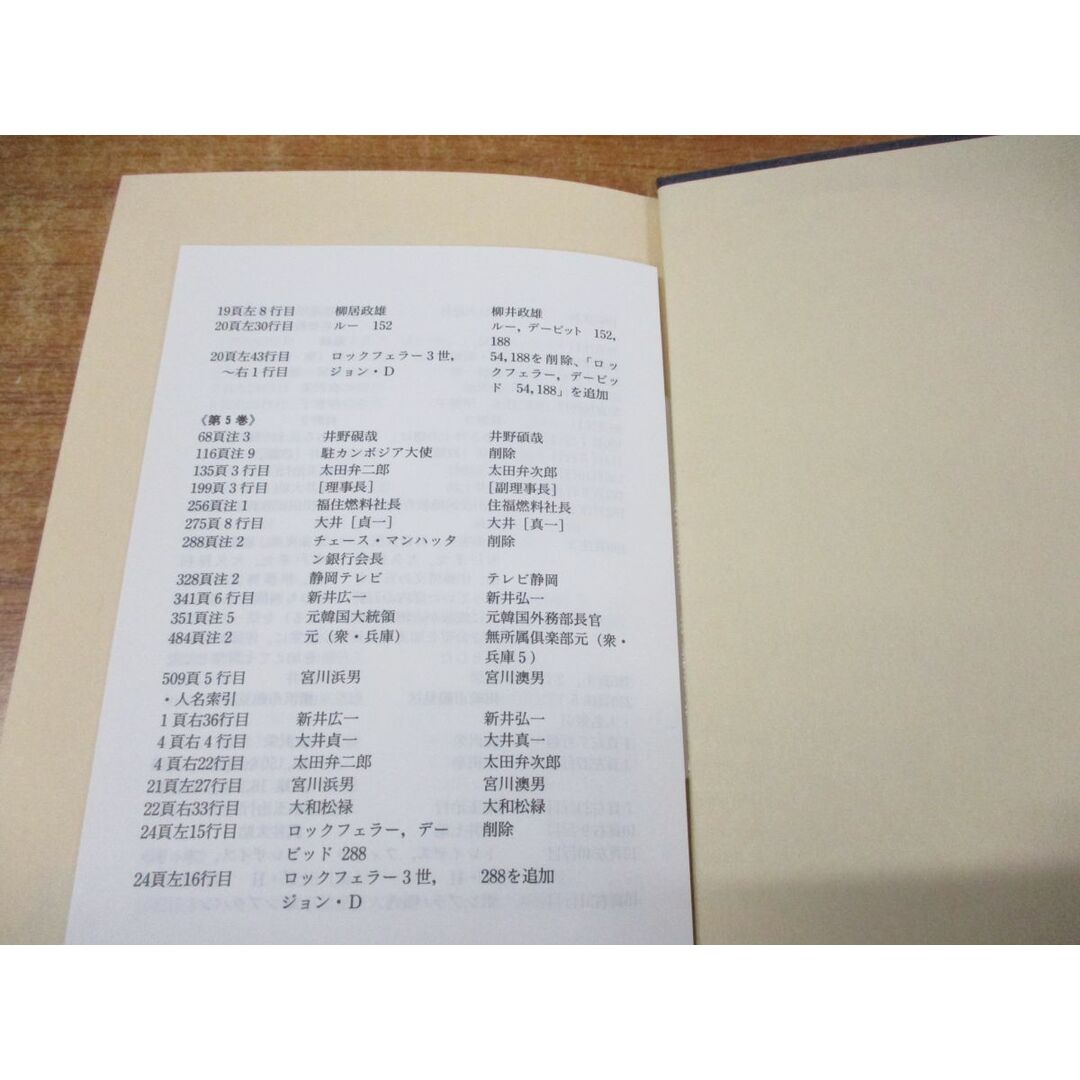 19頁左8行目 柳居政雄 柳井政雄
20頁左30行目 ルー 152 ルー，デービット 152,
188
20頁左43行目 ロックフェラー3世， 54,188を削除、「ロッ
～右1行目 ジョン・D クフェラー，デービッ
ド 54,188」を追加
《第5巻》
68頁注3 井野硯哉 井野碩哉
116頁注9 駐カンボジア大使 削除
135頁3行目 太田弁二郎 太田弁次郎
199頁3行目 [理事長] [副理事長]
256頁注1 福住燃料社長 住福燃料社長
275頁8行目 大井［貞一］ 大井［真一］
288頁注2 チェース・マンハッタ 削除
ン銀行会長
328頁注2 静岡テレビ テレビ静岡
341頁6行目 新井広一 新井弘一
351頁注5 元韓国大統領 元韓国外務部長官
484頁注2 元（衆・兵庫） 無所属倶楽部元（衆・
兵庫5）
509頁5行目 宮川浜男 宮川澳男
・人名索引
1頁右36行目 新井広一 新井弘一
4頁右4行目 大井貞一 大井真一
4頁右22行目 太田弁二郎 太田弁次郎
21頁左27行目 宮川浜男 宮川澳男
22頁右33行目 大和松禄 大和松緑
24頁左15行目 ロックフェラー，デー 削除
ビッド 288
24頁左16行目 ロックフェラー3世， 288を追加
ジョン・D